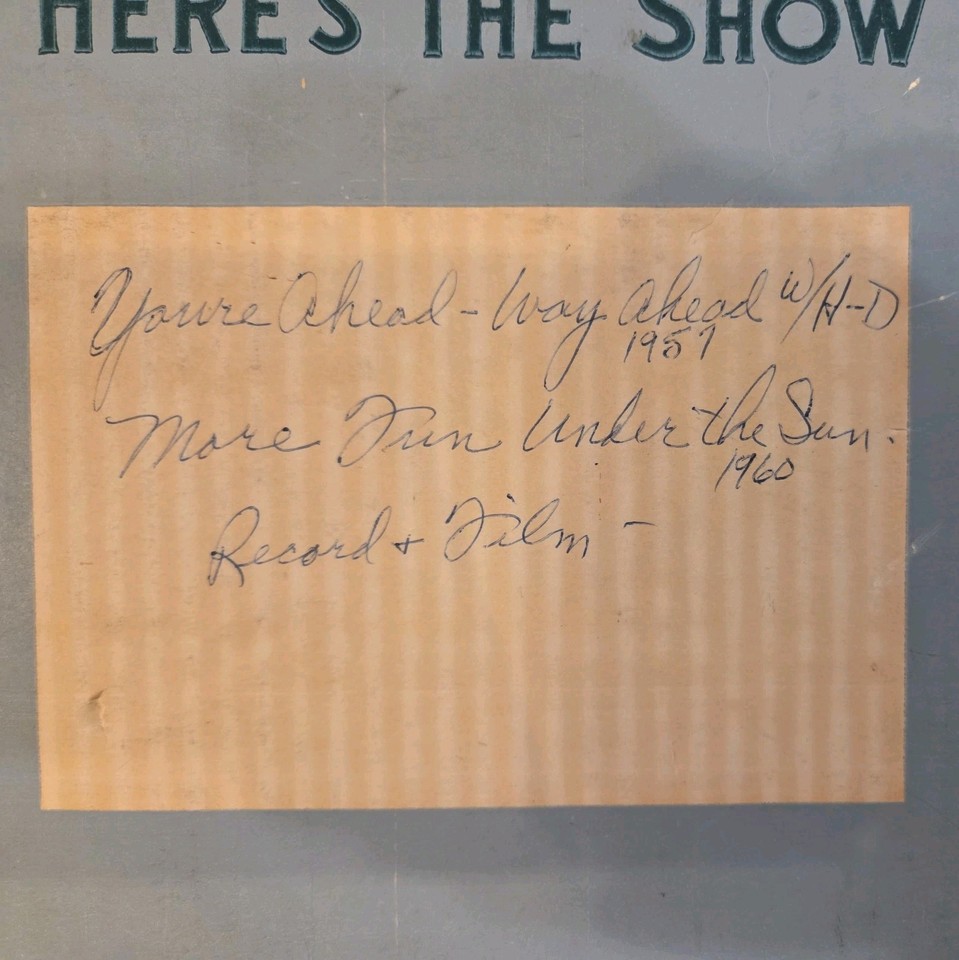 HERE'S THE SHOW
You're Ahead - Way Ahead w/H-D
1957
More Fun Under the Sun.
1960
Record + Film -